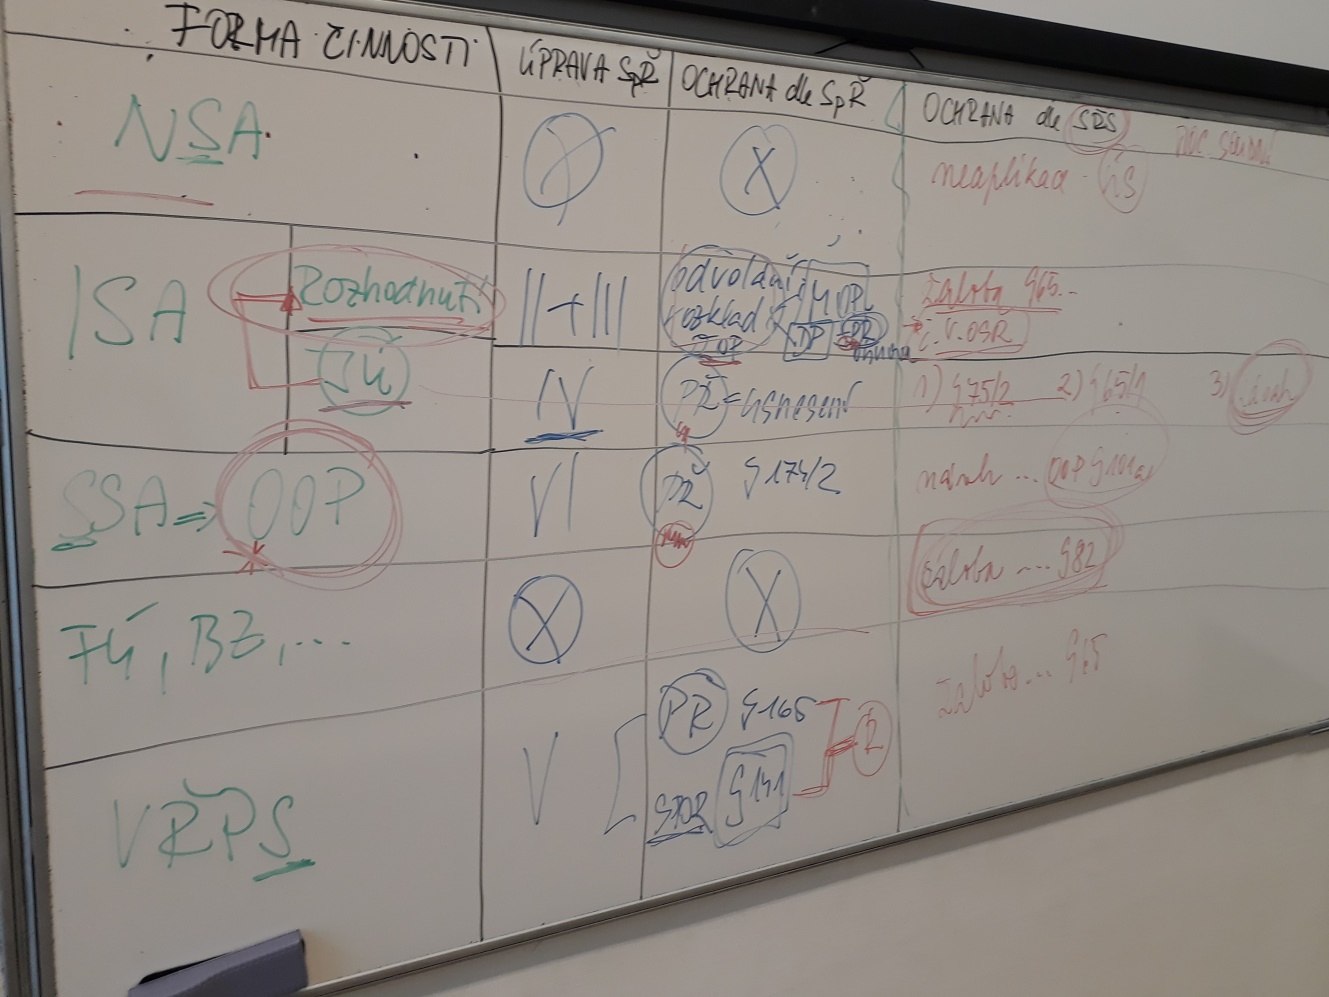 FORMA ČINNOSTI
ÚPRAVA SpŘ
OCHRANA dle SpŘ
OCHRANA dle SŘS
NSA
X
X
neaplikace ÚS
ISA
Rozhodnutí
II+III
odvolání
rozklad
žaloba §65..
ž.v.OSŘ
JÚ
IV
PŘ = usnesení
1) §75/2 2) §65/1 3)
SSA ⇒ OOP
VI
PŘ §174/2
návrh ... OOP §101a
FÚ, BZ, ...
X
X
žaloba ... §82
VŘPS
V
PŘ §165
SPOR §141
R
žaloba ... §65